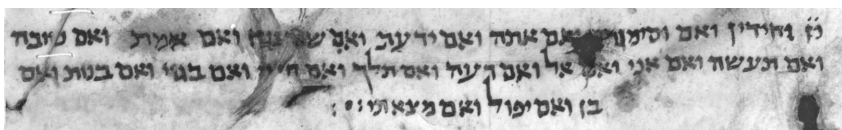 נ̈ז̈ יחידין ואם וסימנהון ואם אתה ואם ידעת ואם ואם אמת ואם טובה
ואם תעשה ואם אני ואם אל ואם דעה ואם תלך ואם חיה ואם בגוי ואם בנות ואם
בן ואם יפול ואם מצאתי :